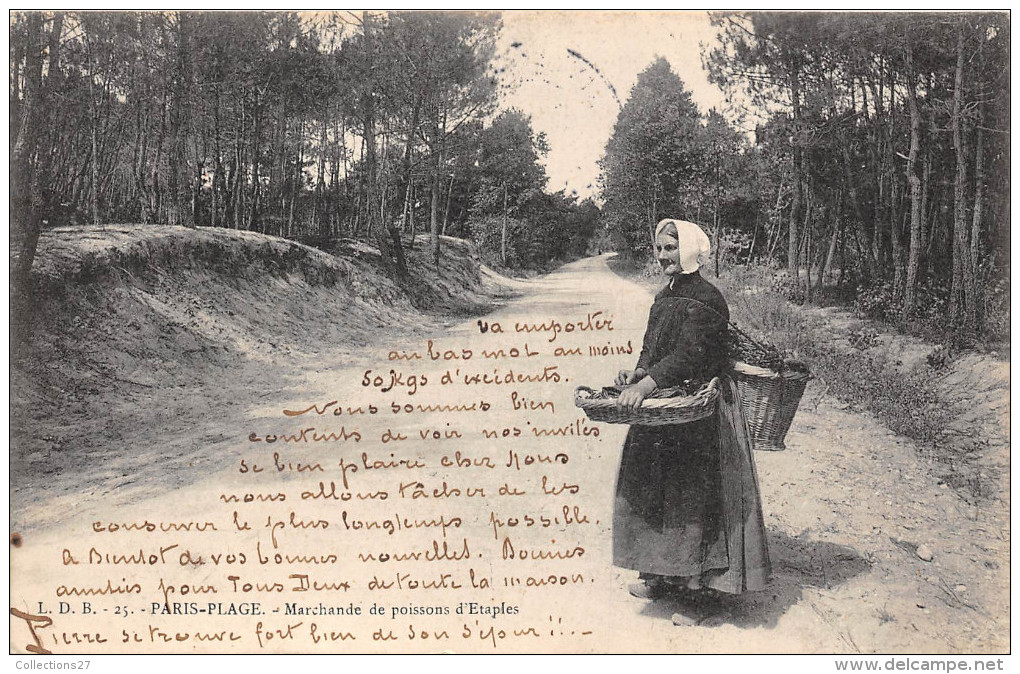 va emporter
au bas mot au moins
50 kgs d'excédents.
Nous sommes bien
contents de voir nos invités
se bien plaire chez Nous
nous allons tâcher de les
conserver le plus longtemps possible.
A Bientôt de vos bonnes nouvelles. Bonnes
amitiés pour Tous Deux de toute la maison.
L. D. B. - 25. - PARIS-PLAGE. - Marchande de poissons d'Etaples
Pierre se trouve fort bien de son séjour !! -
© Collections27
www.delcampe.net